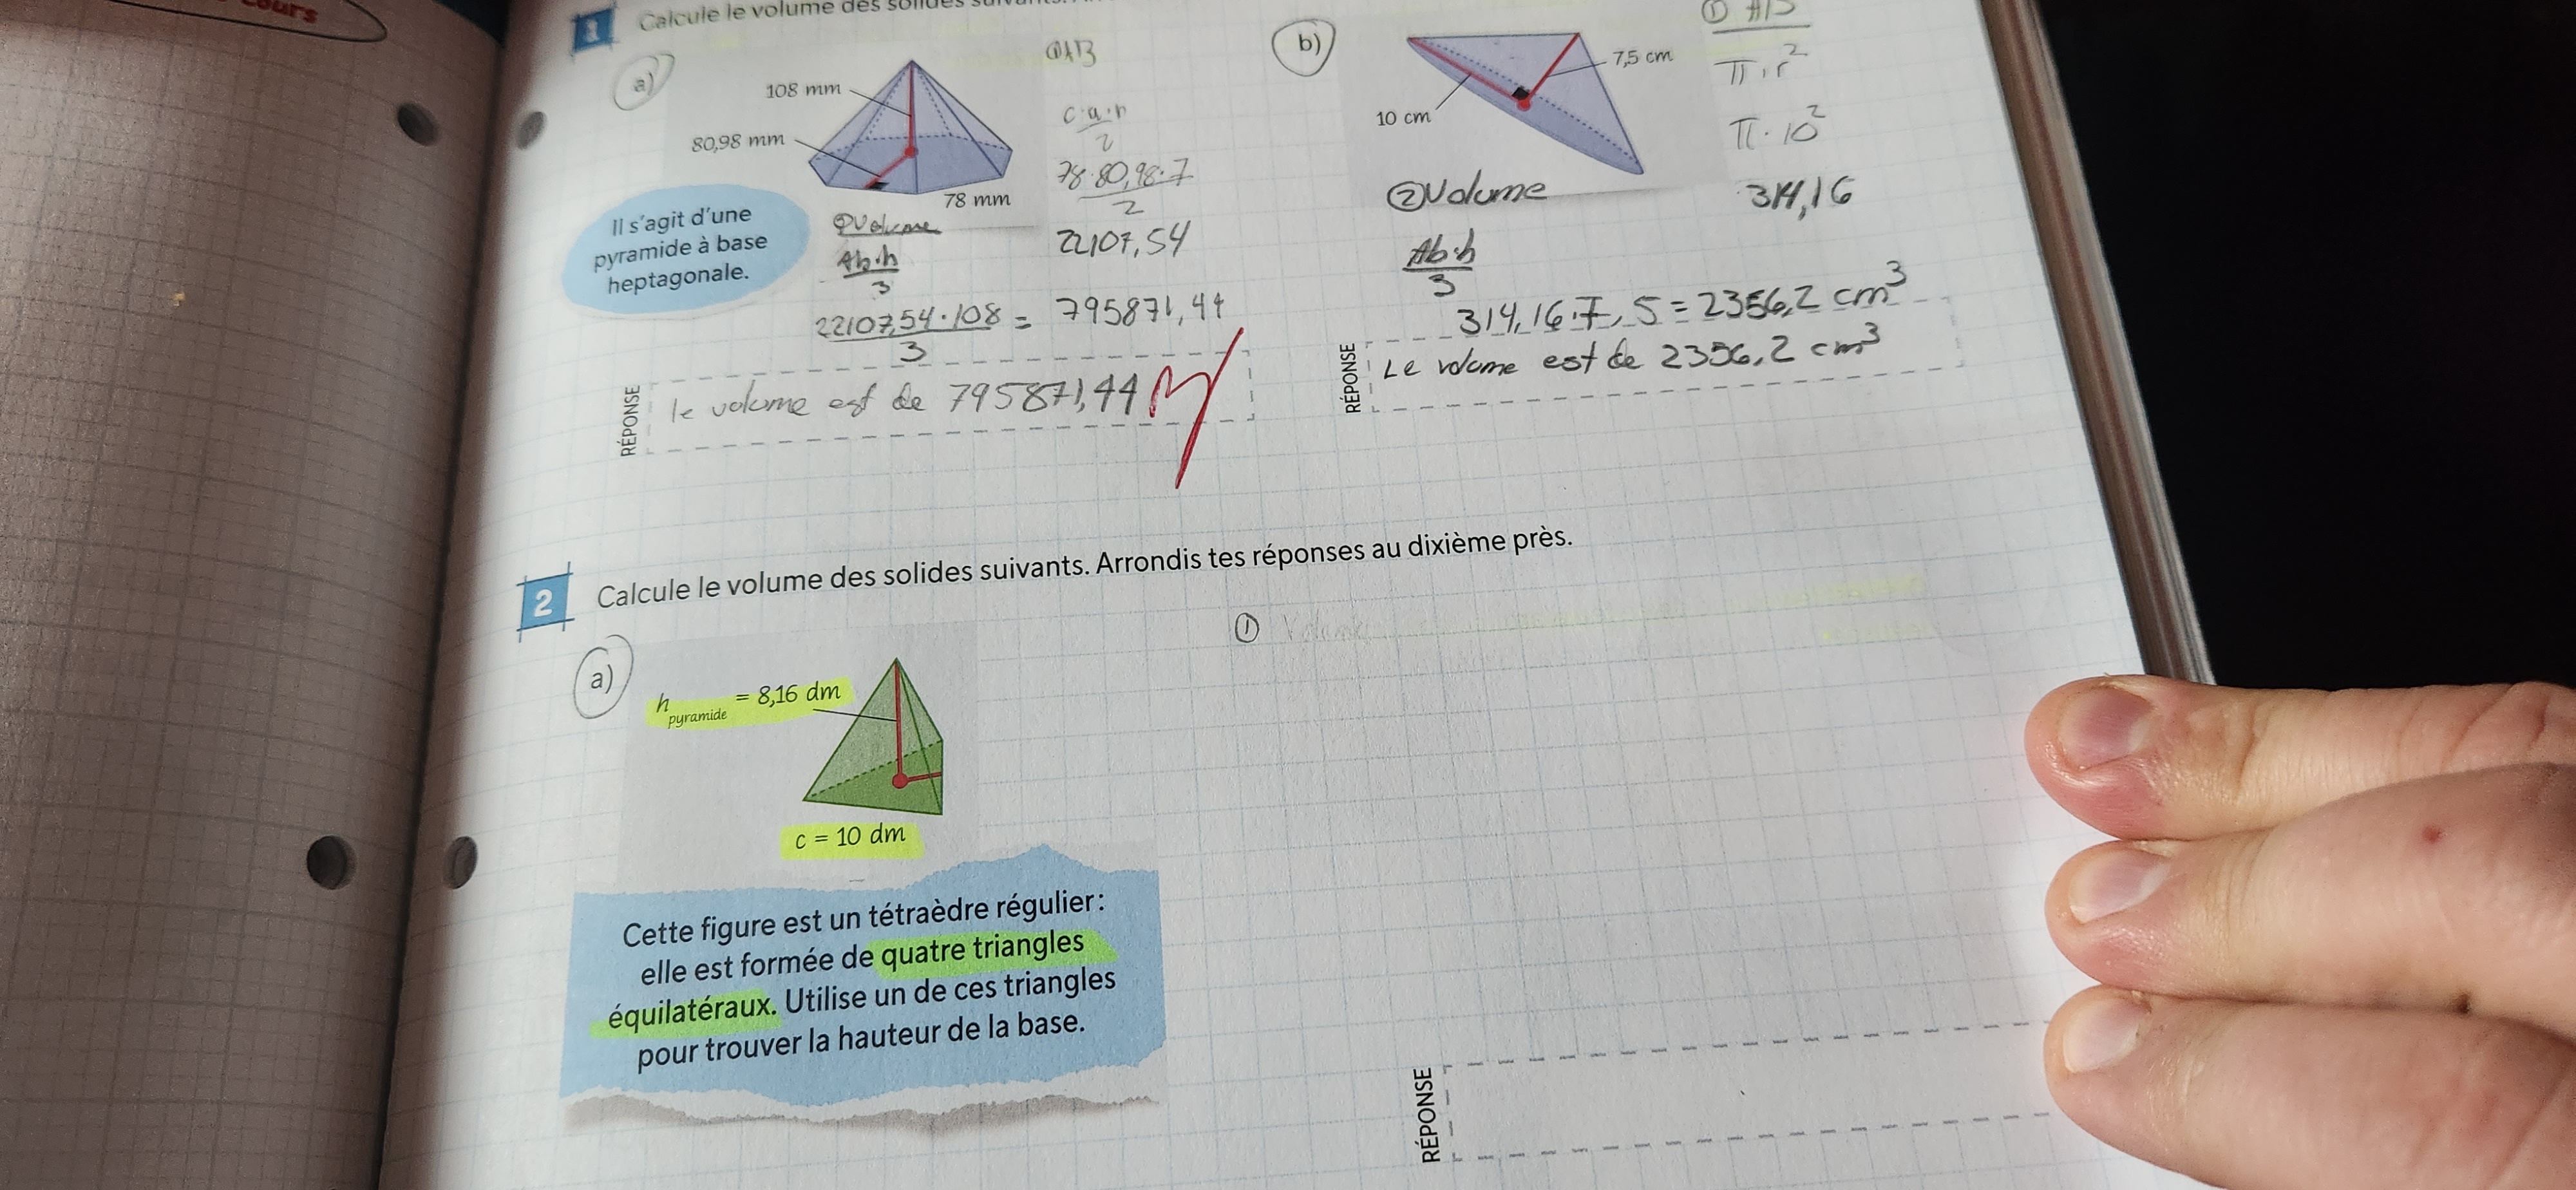 cours
1 Calcule le volume des solides suivants.
a)
108 mm
80,98 mm
78 mm
Il s'agit d'une
pyramide à base
heptagonale.
① AB
c·a·n
2
78·80,98·7
2
22107,54
② Volume
Ab·h
3
22107,54·108 = 795871,44
3
RÉPONSE
le volume est de 795871,44
b)
7,5 cm
10 cm
① AB
π·r²
π·10²
314,16
② Volume
Ab·h
3
314,16·7,5 = 2356,2 cm³
RÉPONSE
Le volume est de 2356,2 cm³
2 Calcule le volume des solides suivants. Arrondis tes réponses au dixième près.
① Volume
a)
h pyramide = 8,16 dm
c = 10 dm
Cette figure est un tétraèdre régulier :
elle est formée de quatre triangles
équilatéraux. Utilise un de ces triangles
pour trouver la hauteur de la base.
RÉPONSE